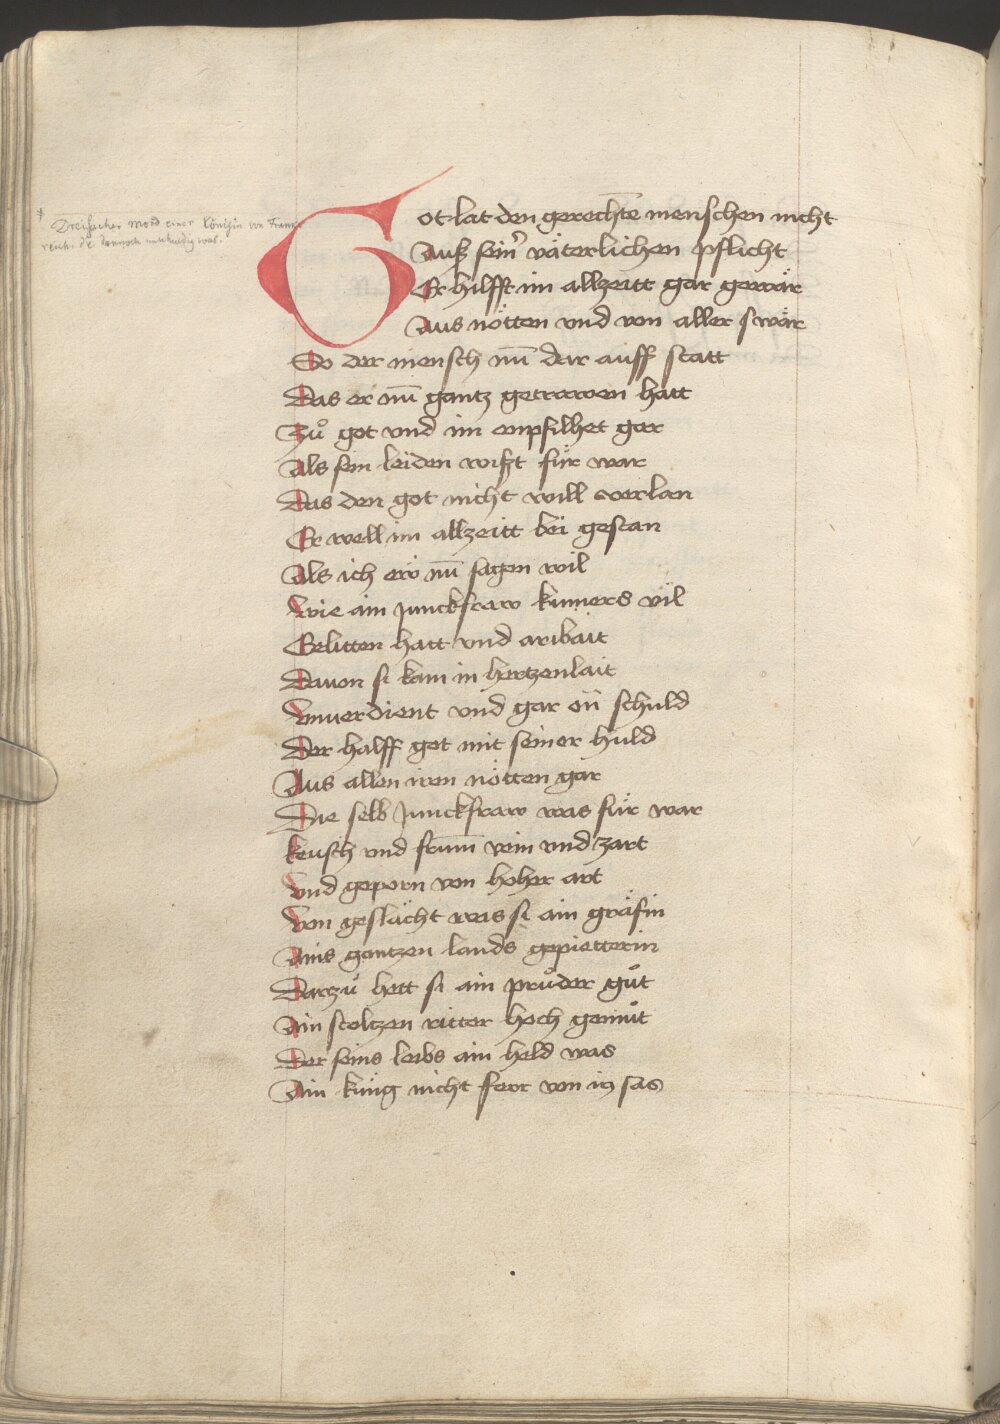 Dreifacher Mord einer Königin von Frank
reich die dennoch unschuldig war.
Got lat den gerechtē menschen nicht
Auß seinr̄ väterlichen pflicht
Er hilfft im allzeitt gar gewär
Aus nötten vnd von aller swär
So der mensch nū dar auff statt
Das er nū gantz getrawen hatt
Zů got vnd im enpfilhet gar
Als sein leiden wißt für war
Das den got nicht will verlan
Er well im allzeitt bei gestan
Als ich ew nū sagen wil
Wie ain junckfraw kumers vil
Gelitten hatt vnd aribait
Dauon si kam in hertzenlait
Vnuerdient vnd gar on schuld
Der halff got mit seiner huld
Aus allen iren nötten gar
Die selb junckfraw was für war
keusch vnd frum̄ rein vnd zart
Vnd geporn von hoher art
Von geslächt was si ain gräfin
Ains gantzen lands gepietterin
Darzů hett si ain průder gůt
Ain stoltzen ritter hoch gemůt
Der seins leibs ain held was
Ain küng nicht ferr von in sas